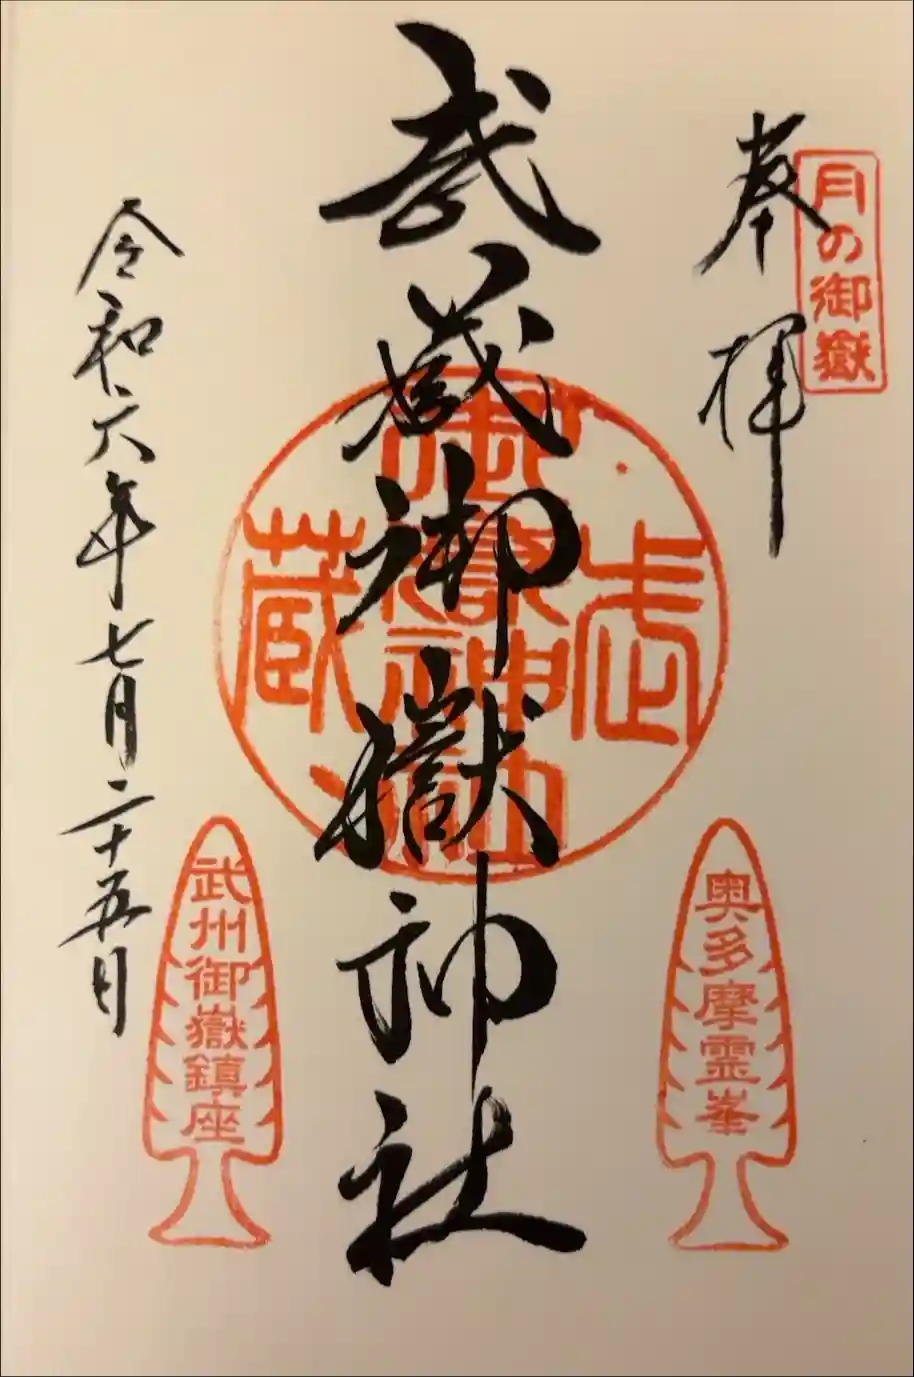 奉拝
月の御嶽
武蔵御嶽神社
武蔵
奥多摩霊峯
武州御嶽鎮座
令和六年七月二十五日